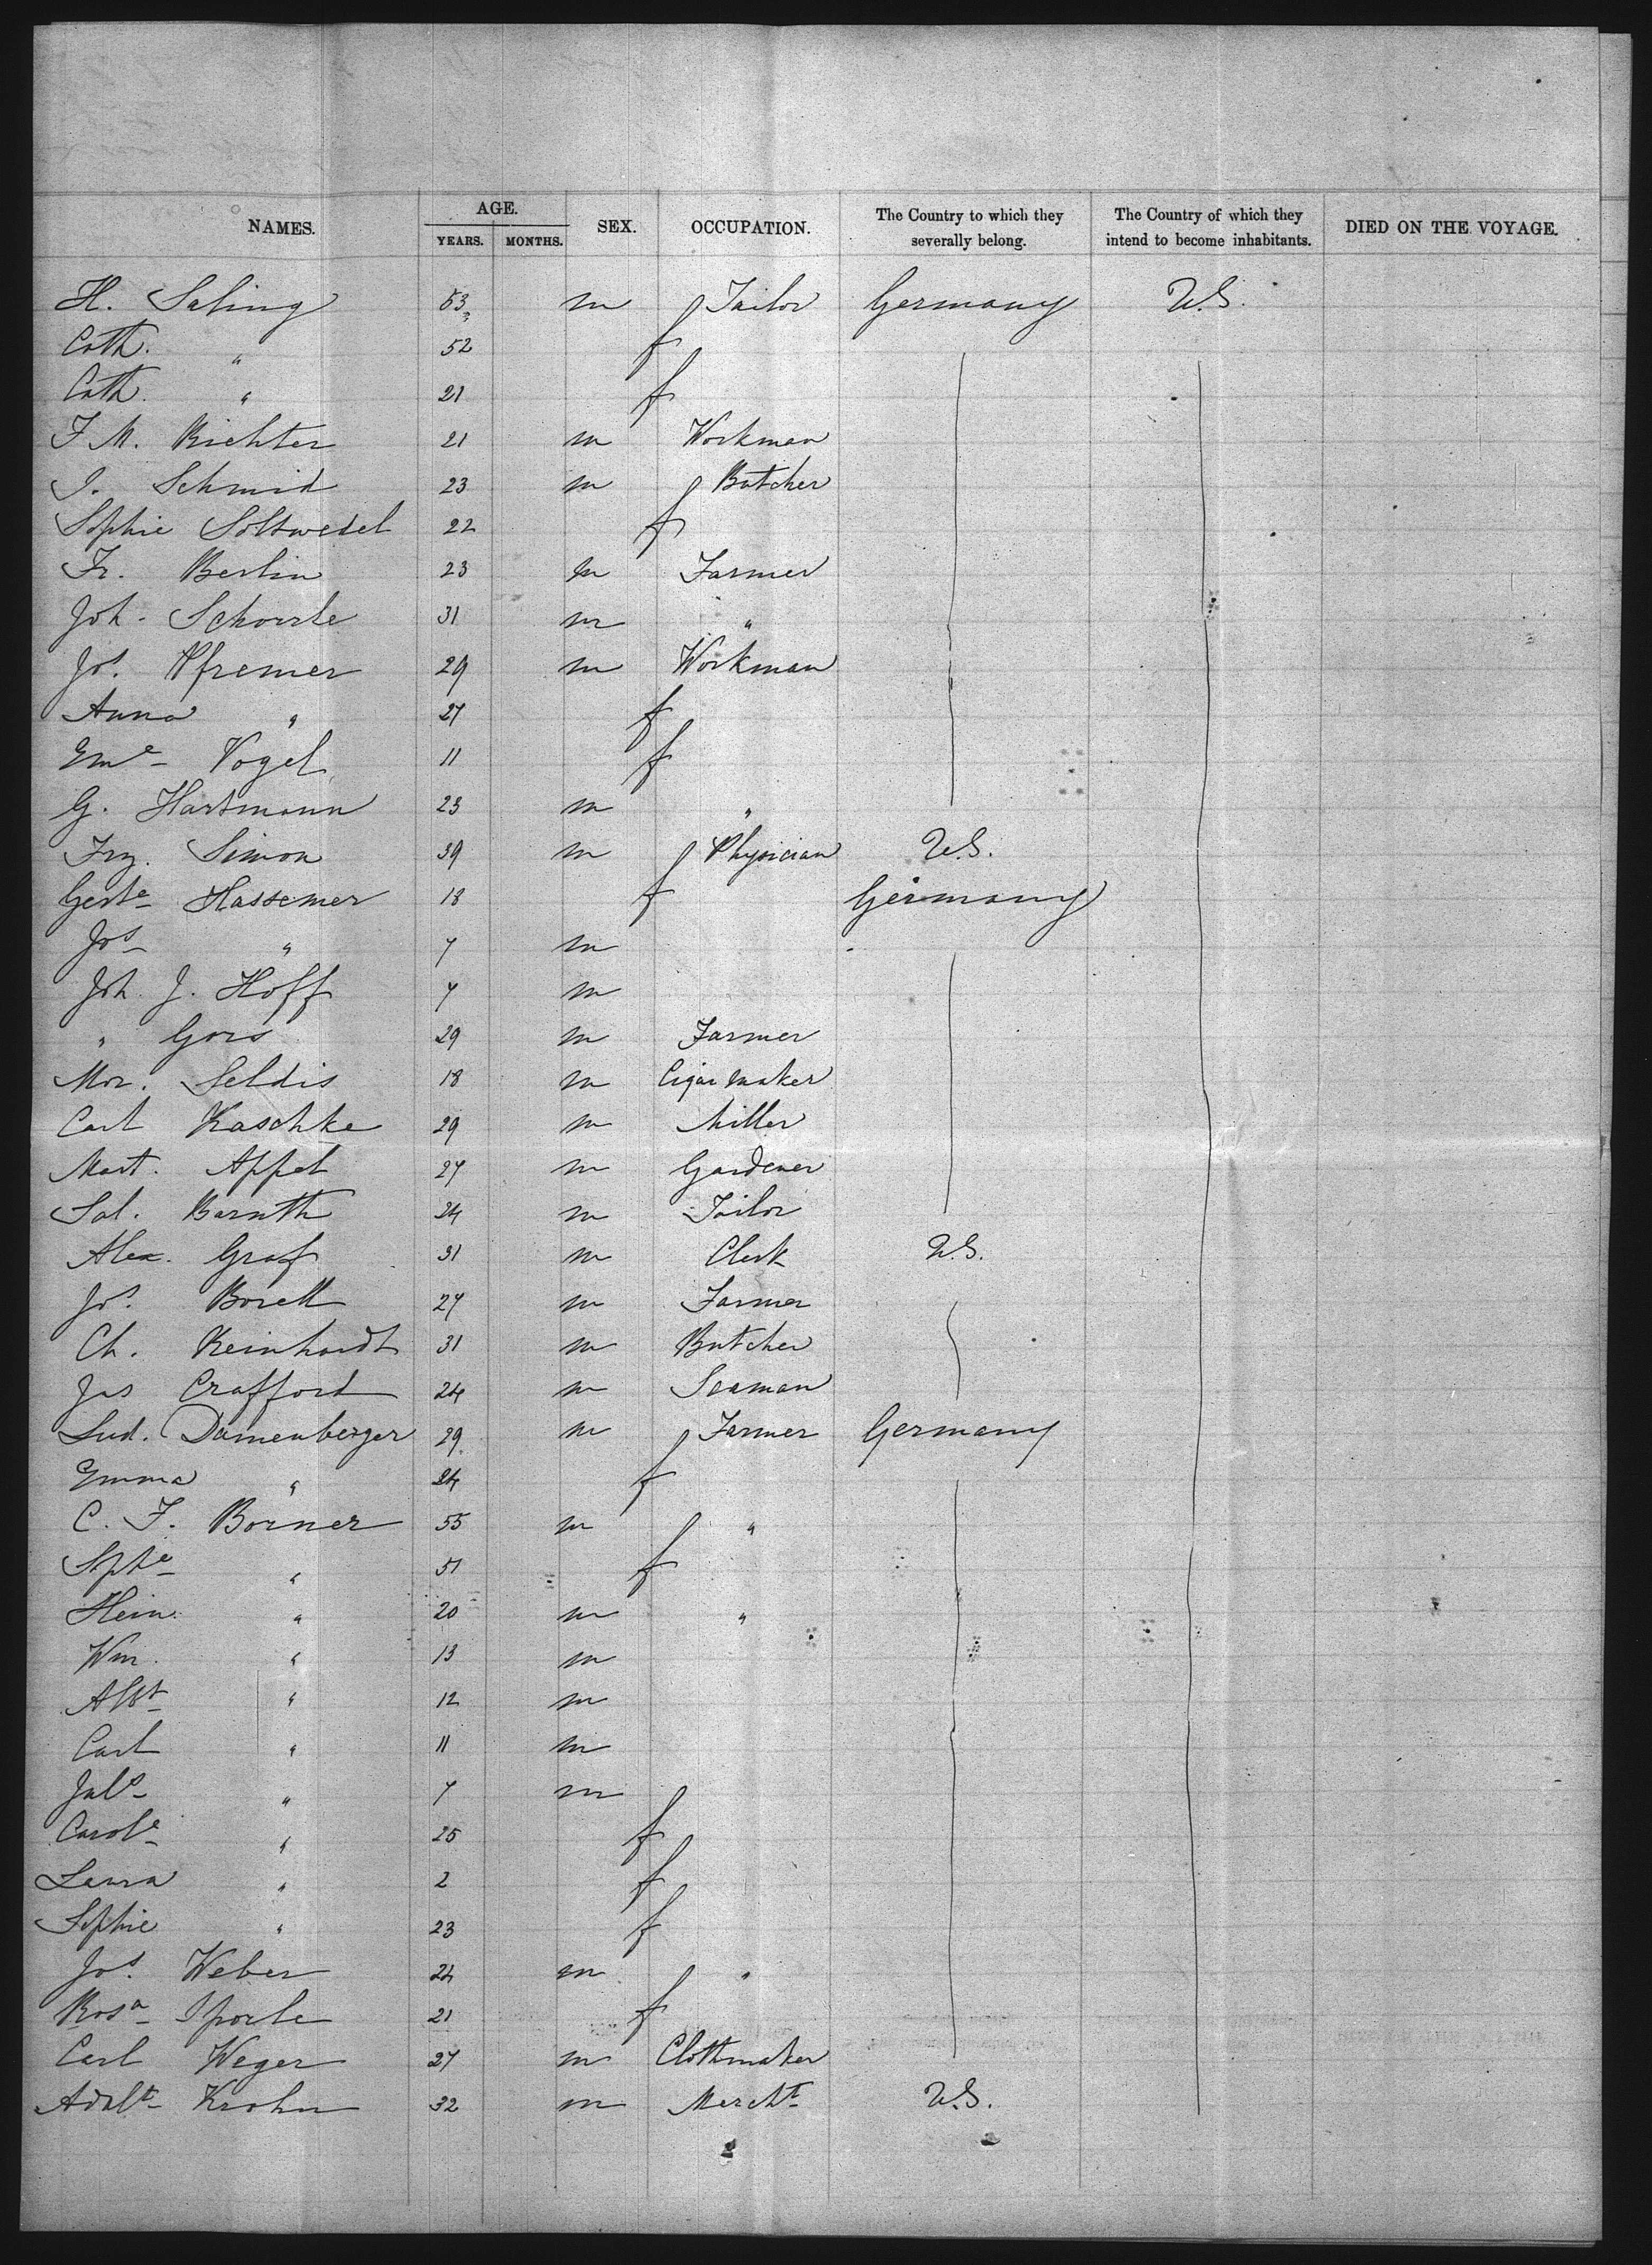 NAMES. AGE. YEARS. MONTHS. SEX. OCCUPATION. The Country to which they severally belong. The Country of which they intend to become inhabitants. DIED ON THE VOYAGE.
H. Saling 53 m Tailor Germany U.S.
Cath. " 52 f
Cath. " 21 f
F. M. Richter 21 m Workman
J. Schmid 23 m Butcher
Sophie Soltwedel 22 f
Fr. Berlin 23 m Farmer
Joh. Schorrle 31 m "
Jos. Pfremer 29 m Workman
Anna " 27 f
Eme Vogel 11 f
G. Hartmann 23 m "
Frz. Simon 39 m Physician U.S.
Gerte Hassemer 18 f Germany
Jos " 7 m
Joh. J. Hoff 7 m
" Gors 29 m Farmer
Mor. Seldis 18 m Cigar maker
Carl Kaschke 29 m Miller
Mart. Appel 27 m Gardener
Sal. Baruth 24 m Tailor
Alex. Graf 31 m Clerk U.S.
Jos. Borell 27 m Farmer
Ch. Reinhardt 31 m Butcher
Jas Crafford 24 m Seaman
Lud. Damenberger 29 m Farmer Germany
Emma " 24 f
C. F. Borner 55 m "
Sphe " 51 f
Hein. " 20 m "
Wm. " 13 m
Albt " 12 m
Carl " 11 m
Juls " 7 m
Carole " 25 f
Laura " 2 f
Sophie " 23 f
Jos. Weber 24 m "
Rosa Sporle 21 f
Carl Weger 27 m Clothmaker
Adolt Krohn 32 m Mercht U.S.